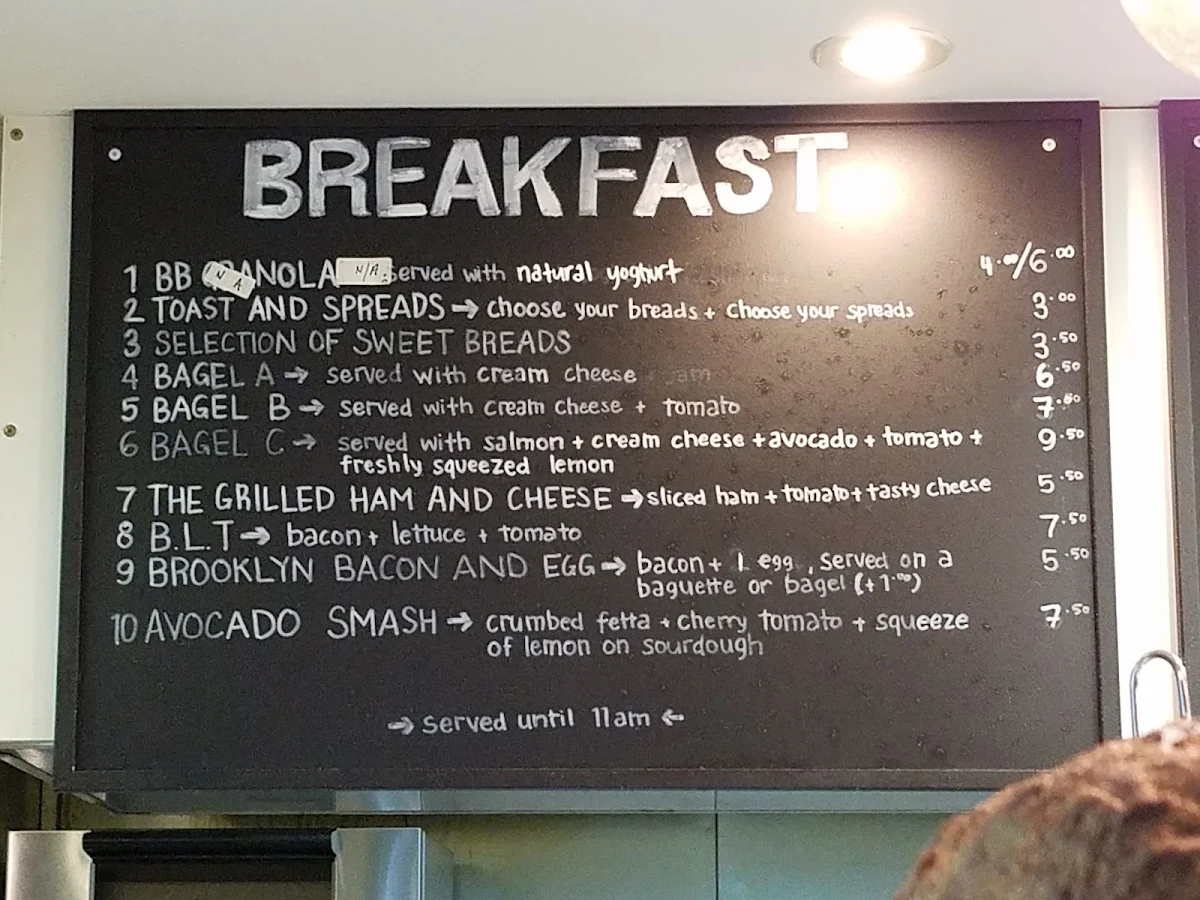 BREAKFAST
1 BB GRANOLA N/A N/A served with natural yoghurt 4.00/6.00
2 TOAST AND SPREADS → choose your breads + choose your spreads 3.00
3 SELECTION OF SWEET BREADS 3.50
4 BAGEL A → served with cream cheese 6.50
5 BAGEL B → served with cream cheese + tomato 7.50
6 BAGEL C → served with salmon + cream cheese + avocado + tomato + 9.50
freshly squeezed lemon
7 THE GRILLED HAM AND CHEESE → sliced ham + tomato + tasty cheese 5.50
8 B.L.T → bacon + lettuce + tomato 7.50
9 BROOKLYN BACON AND EGG → bacon + 1 egg, served on a 5.50
baguette or bagel (+1.00)
10 AVOCADO SMASH → crumbed fetta + cherry tomato + squeeze 7.50
of lemon on sourdough
→ served until 11am ←